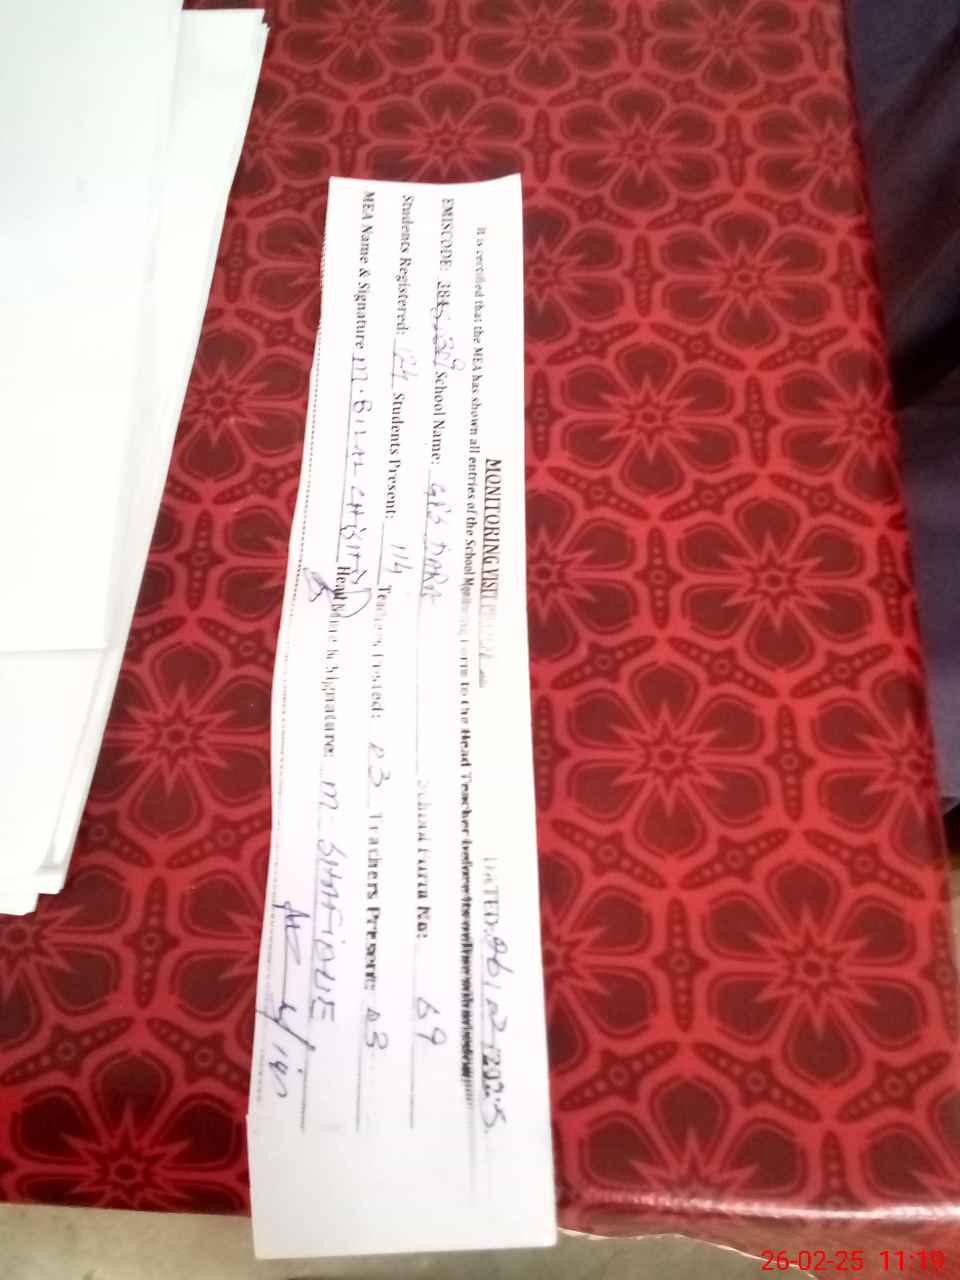 MONITORING VISIT
DATED: 26/2/2025
It is certified that the MEA has shown all entries of the School Monitoring Form to the Head Teacher before its online submission
EMISCODE: School Name: GPS DARA School Form No: 69
Students Registered: 124 Students Present: 114 Teachers Posted: 03 Teachers Present: 03
MEA Name & Signature M. BILAL CHISHTI Head Name & Signature: M. SHAFIQUE
26-02-25 11:19